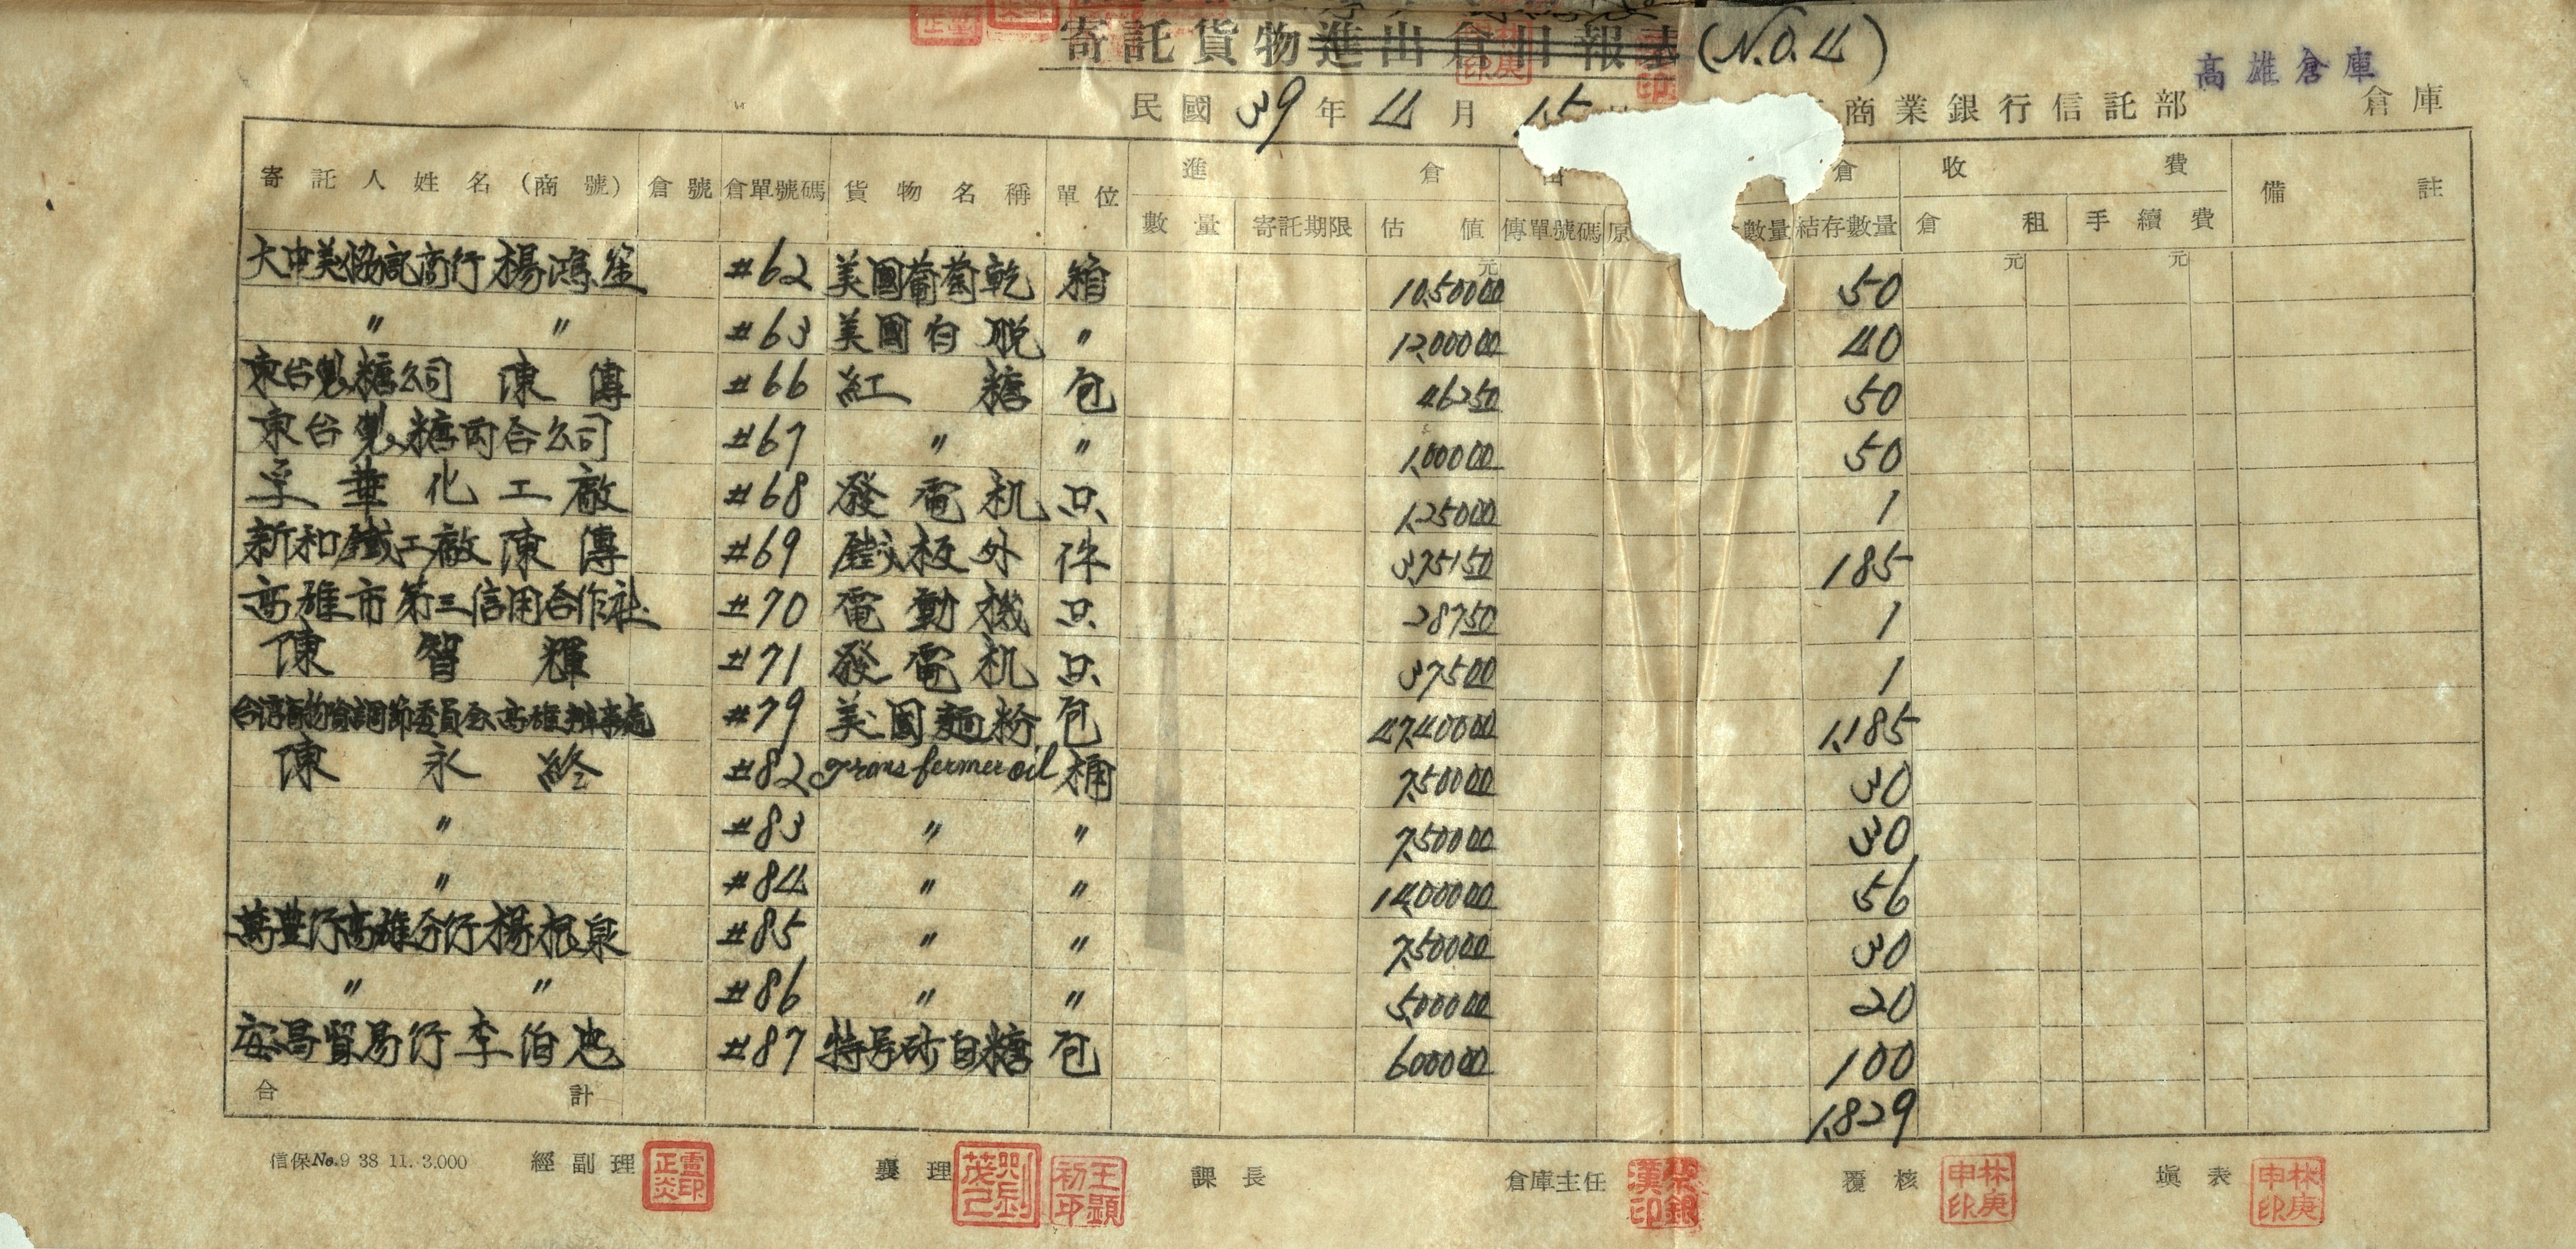 寄託貨物進出倉日報表(N.O.4)
高雄倉庫
民國39年4月15 商業銀行信託部 倉庫
寄託人姓名(商號) 倉號 倉單號碼 貨物名稱 單位 進倉 出倉 收費 備註
數量 寄託期限 估值 傳單號碼 原 數量 結存數量 倉租 手續費
元 元 元
大中美協記商行楊鴻笙 #62 美國葡萄乾 箱 10,500.00 50
〃 〃 #63 美國白脱 〃 12,000.00 40
東台製糖公司 陳傳 #66 紅糖 包 462.50 50
東台製糖両合公司 #67 〃 〃 1,000.00 50
孚華化工廠 #68 發電机 只 1,250.00 1
新和鐵工廠陳傳 #69 鐵板外 件 3,751.50 185
高雄市第三信用合作社 #70 電動機 只 287.50 1
陳智輝 #71 發電机 只 375.00 1
高雄辦事處 #79 美國麵粉 包 47,400.00 1,185
陳永 #82 oil 桶 7,500.00 30
〃 #83 〃 〃 7,500.00 30
〃 #84 〃 〃 14,000.00 56
萬豊行高雄分行楊根泉 #85 〃 〃 7,500.00 30
〃 〃 #86 〃 〃 5,000.00 20
安昌貿易行李伯忠 #87 特号砂白糖 包 6000.00 100
合計 1,829
信保No.9 38 11. 3.000 經副理 襄理 課長 倉庫主任 覆核 填表
王顯初印
林庚申印
林庚申印